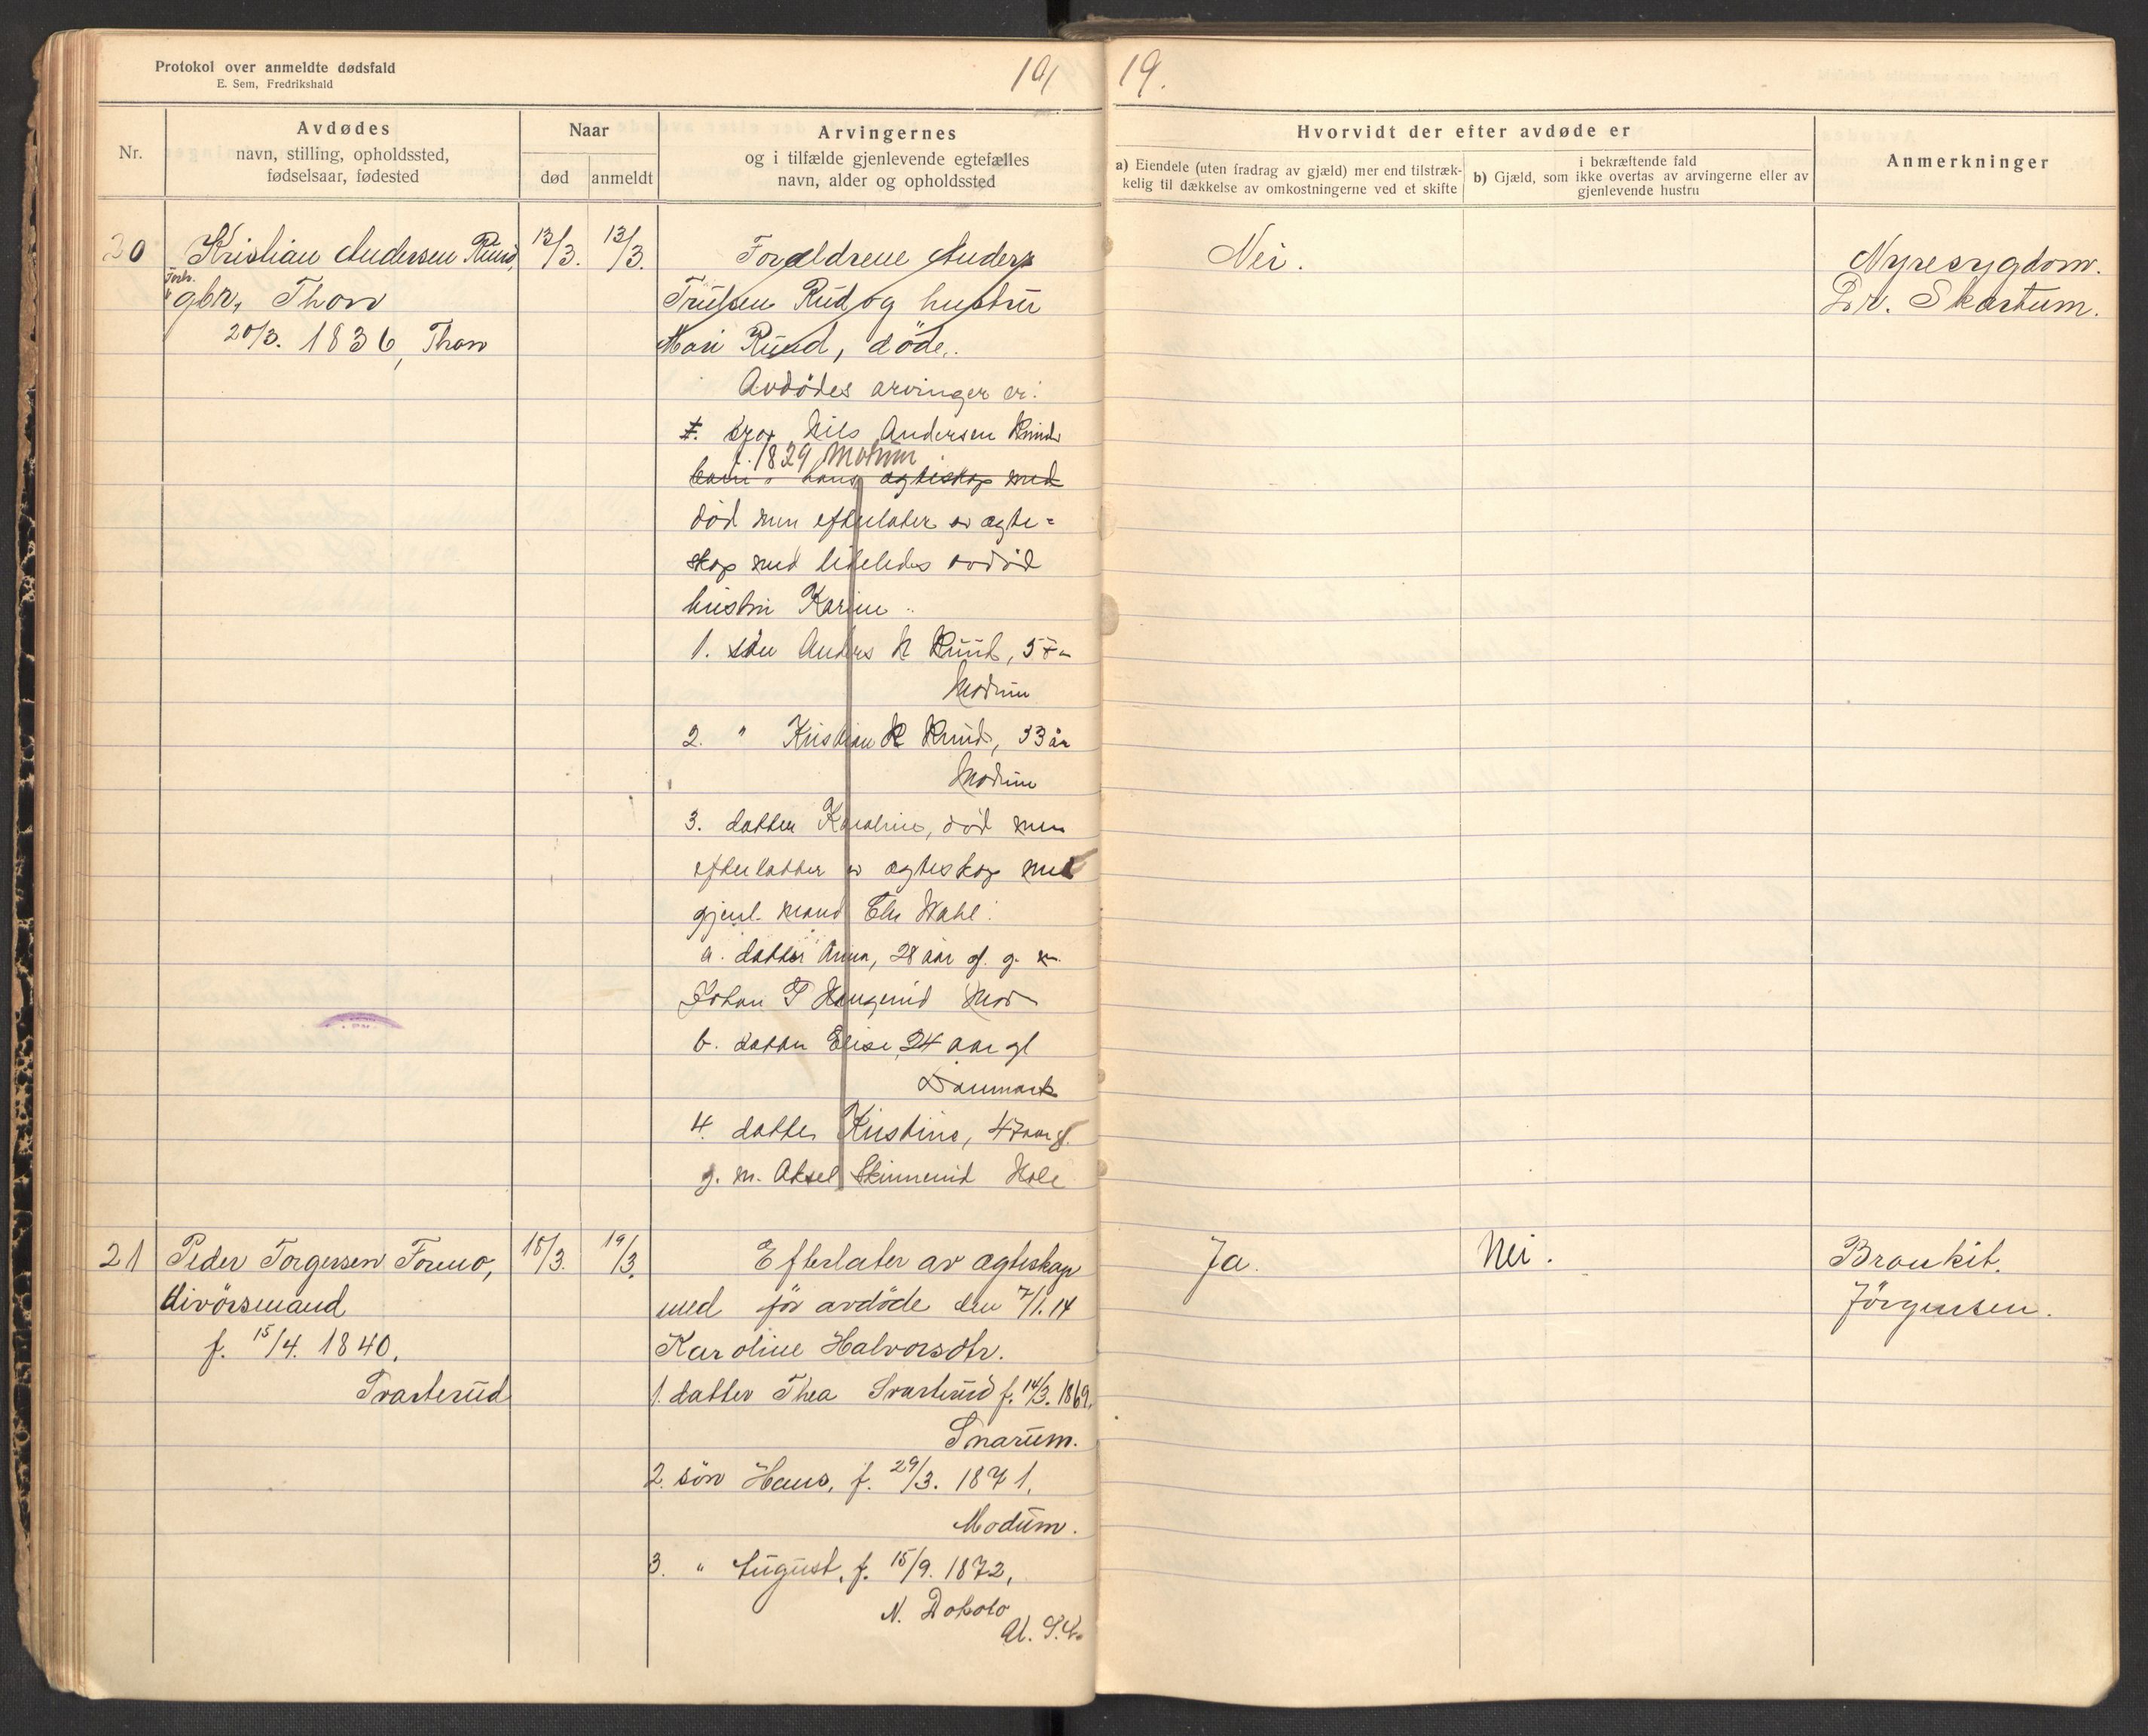 Protokol over anmeldte dødsfald
E. Sem, Fredrikshald
19.
Nr.
Avdødes
navn, stilling, opholdssted,
fødselsaar, fødested
Naar
død
anmeldt
Arvingernes
og i tilfælde gjenlevende egtefælles
navn, alder og opholdssted
Hvorvidt der efter avdøde er
a) Eiendele (uten fradrag av gjæld) mer end tilstræk-
kelig til dækkelse av omkostningerne ved et skifte
i bekræftende fald
b) Gjæld, som ikke overtas av arvingerne eller av
gjenlevende hustru
Anmerkninger
20
Kristian Andersen Ruud,
Forh.
gbr., Thon
20/3. 1836, Thon
13/3.
13/3.
Forældrene Anders
Trulsen Rud og hustru
Mari Ruud, døde.
Avdødes arvinger er:
Nils Andersen Ruud
1829 Modum
hans ægteskap med
død men efterlater av ægte-
skap med likeledes avdød
hustru Karine:
1. søn Anders N Ruud, 
Modum
2. " Kristian N Ruud, 33 år
Modum
3. datter Karoline, død men
efterlatter av ægteskap med
gjenl. mand Wahl:
a. datter Anna, 28 aar gl. g. m.
Johan Haugerud Mod
b. datter Elise, 24 aar gl
Danmark
4. datter Kristine, 47 aar gl.
g. m. Aksel Skinnerud Hole
Nei.
Nyresygdom.
Dr. Skartum.
21
Peder Torgersen Foreno,
livörsmand
f. 15/4. 1840.
Svarterud
18/3.
19/3.
Efterlater av ægteskap
med før avdøde den 7/1.14
Karoline Halvorsdtr.
1. datter Thea Svarterud f. 14/3. 1869.
Snarum.
2. søn Hans, f. 29/3. 1871,
Modum.
3. " August, f. 15/9. 1872,
N. Dakota
U. S. A.
Ja.
Nei.
Bronkit.
Jörgensen.